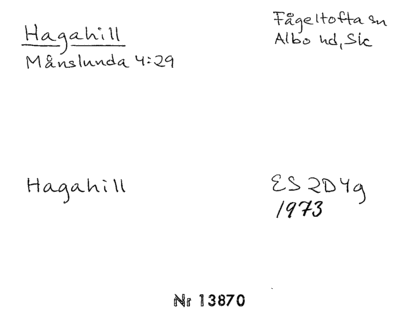 Hagahill
Månslunda 4:29
Fågeltofta sn
Albo hd, Sk
Hagahill
ES 2D4g
1973
Nr 13870